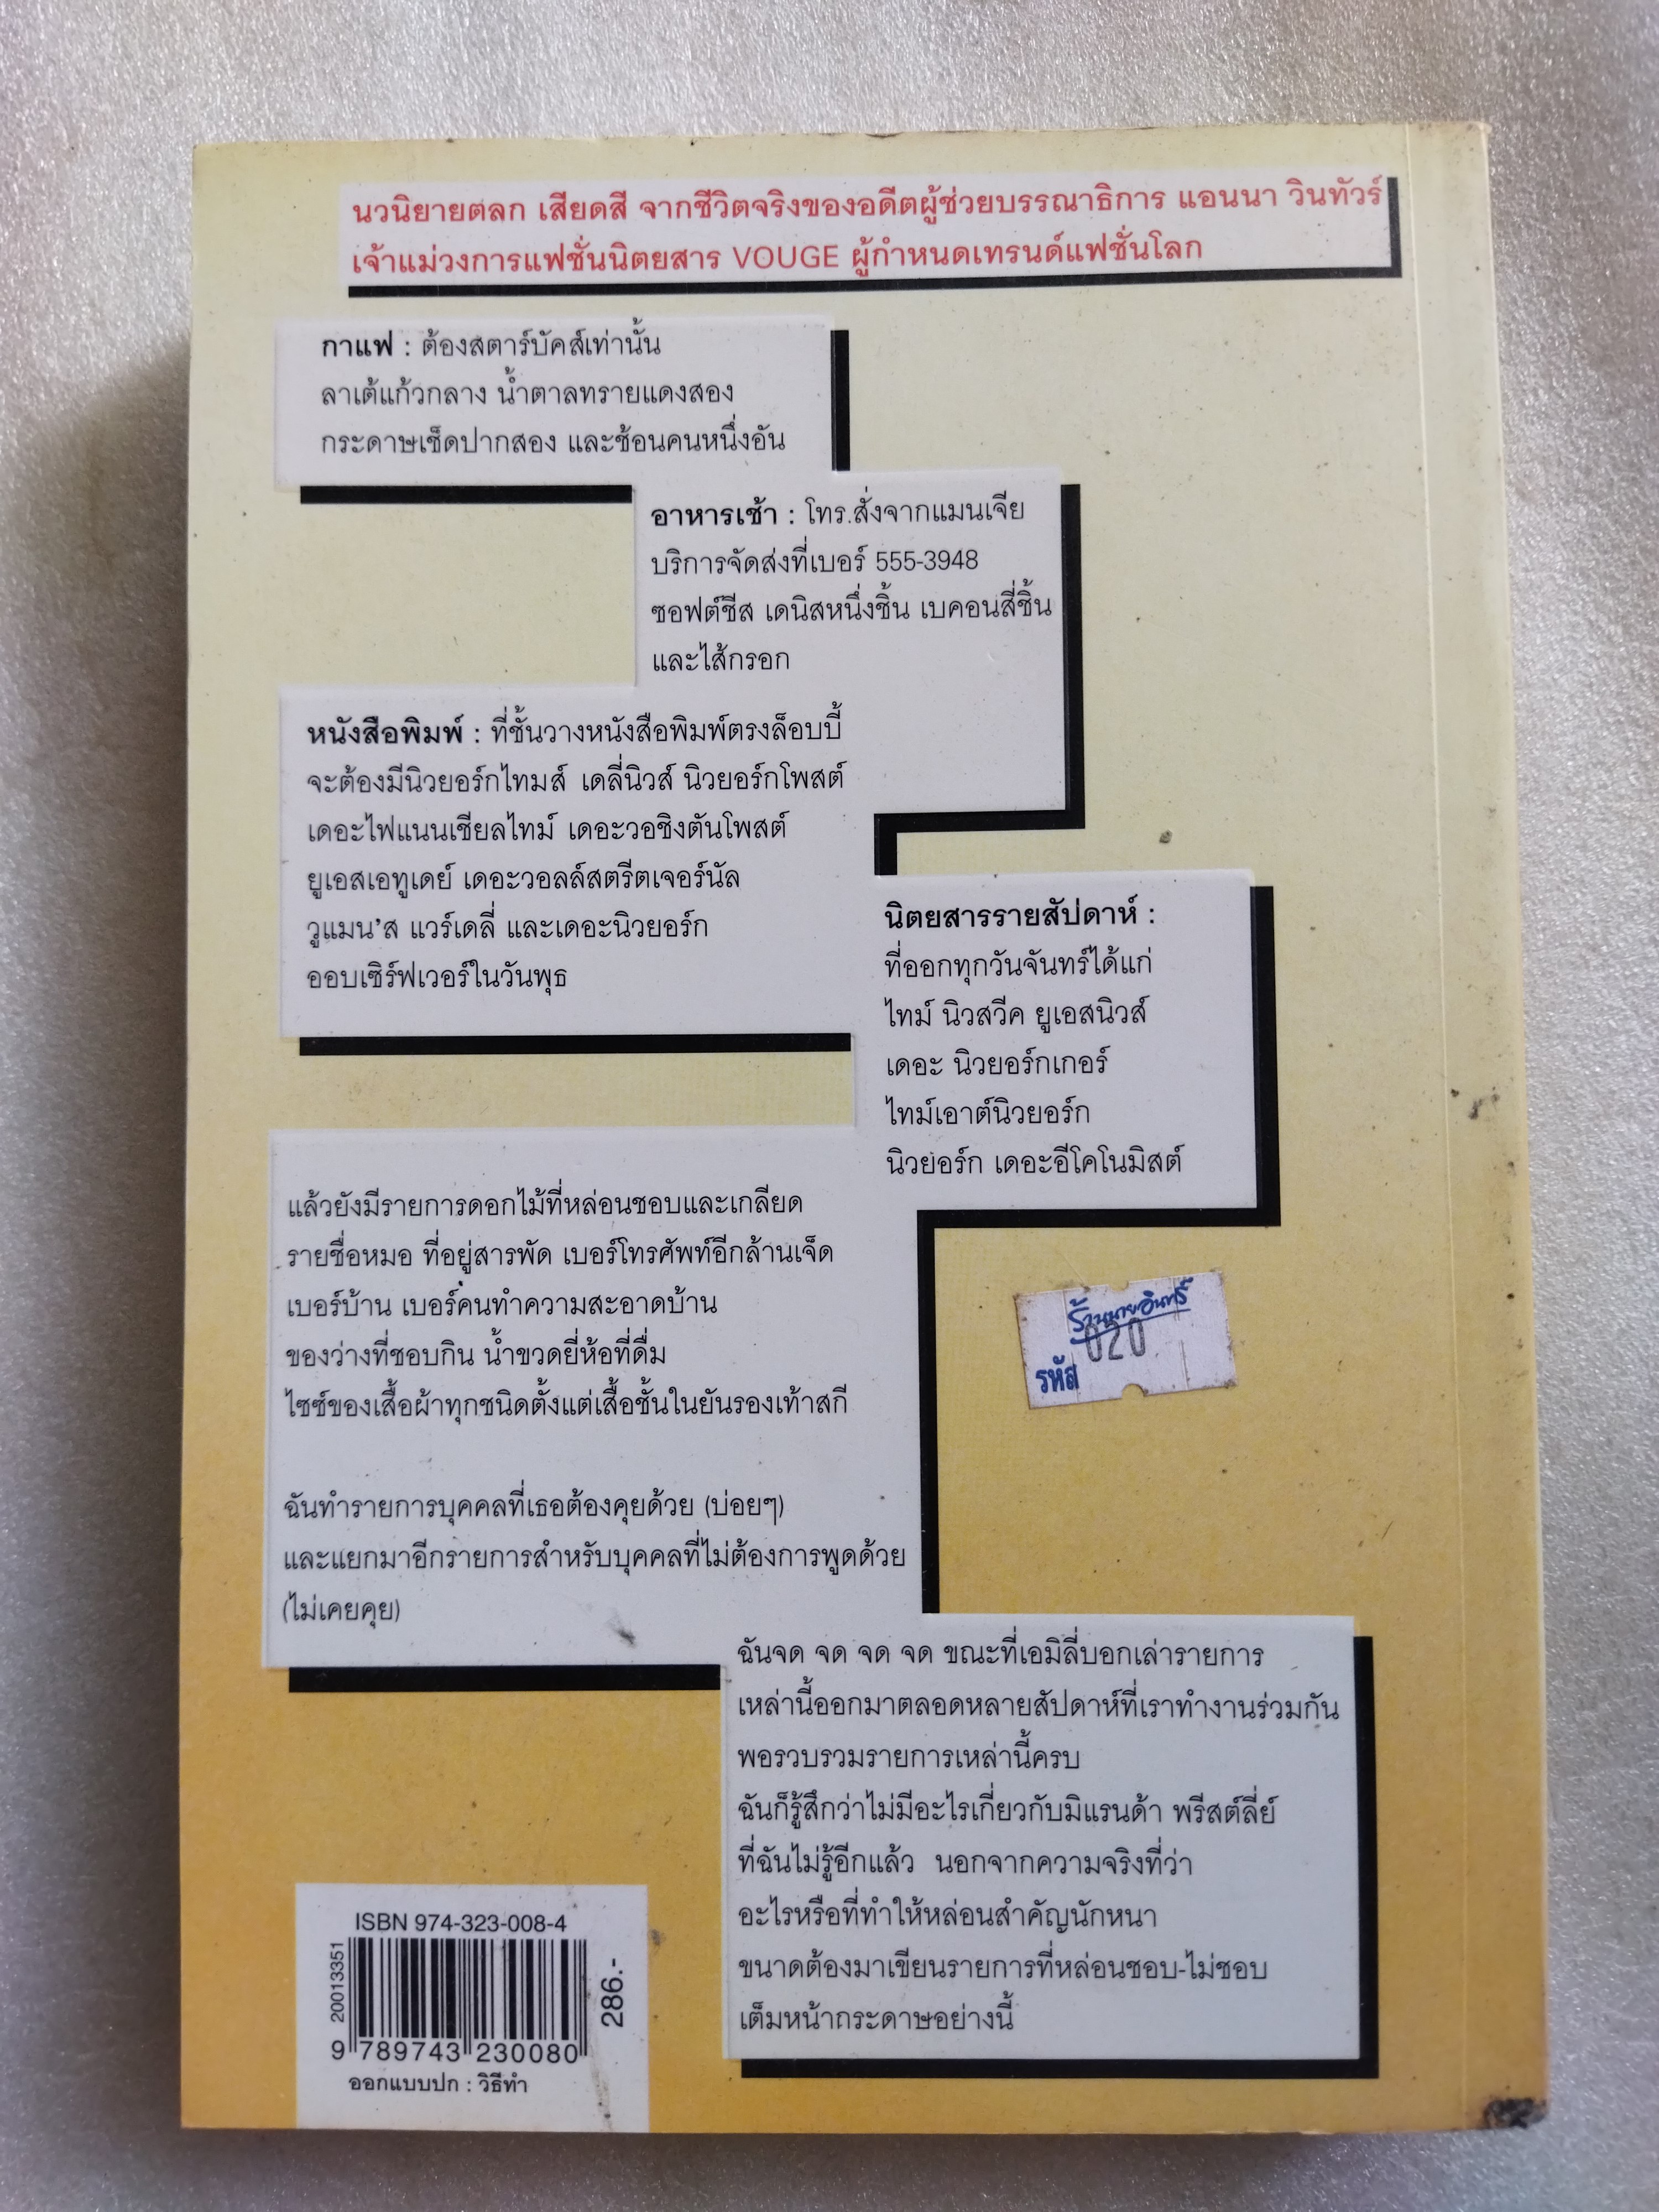 นวนิยายตลก เสียดสี จากชีวิตจริงของอดีตผู้ช่วยบรรณาธิการ แอนนา วินทัวร์
เจ้าแม่วงการแฟชั่นนิตยสาร VOUGE ผู้กำหนดเทรนด์แฟชั่นโลก
กาแฟ : ต้องสตาร์บัคส์เท่านั้น
ลาเต้แก้วกลาง น้ำตาลทรายแดงสอง
กระดาษเช็ดปากสอง และช้อนคนหนึ่งอัน
อาหารเช้า : โทร.สั่งจากแมนเจีย
บริการจัดส่งที่เบอร์ 555-3948
ซอฟต์ชีส เดนิสหนึ่งชิ้น เบคอนสี่ชิ้น
และไส้กรอก
หนังสือพิมพ์ : ที่ชั้นวางหนังสือพิมพ์ตรงล็อบบี้
จะต้องมีนิวยอร์กไทมส์ เดลี่นิวส์ นิวยอร์กโพสต์
เดอะไฟแนนเชียลไทม์ เดอะวอชิงตันโพสต์
ยูเอสเอทูเดย์ เดอะวอลล์สตรีตเจอร์นัล
วูแมน'ส แวร์เดลี่ และเดอะนิวยอร์ก
ออบเซิร์ฟเวอร์ในวันพุธ
นิตยสารรายสัปดาห์ :
ที่ออกทุกวันจันทร์ได้แก่
ไทม์ นิวสวีค ยูเอสนิวส์
เดอะ นิวยอร์กเกอร์
ไทม์เอาต์นิวยอร์ก
นิวยอร์ก เดอะอีโคโนมิสต์
แล้วยังมีรายการดอกไม้ที่หล่อนชอบและเกลียด
รายชื่อหมอ ที่อยู่สารพัด เบอร์โทรศัพท์อีกล้านเจ็ด
เบอร์บ้าน เบอร์คนทำความสะอาดบ้าน
ของว่างที่ชอบกิน น้ำขวดยี่ห้อที่ดื่ม
ไซซ์ของเสื้อผ้าทุกชนิดตั้งแต่เสื้อชั้นในยันรองเท้าสกี
ร้านนายอินทร์
020
รหัส
ฉันทำรายการบุคคลที่เธอต้องคุยด้วย (บ่อยๆ)
และแยกมาอีกรายการสำหรับบุคคลที่ไม่ต้องการพูดด้วย
(ไม่เคยคุย)
ฉันจด จด จด จด ขณะที่เอมิลี่บอกเล่ารายการ
เหล่านี้ออกมาตลอดหลายสัปดาห์ที่เราทำงานร่วมกัน
พอรวบรวมรายการเหล่านี้ครบ
ฉันก็รู้สึกว่าไม่มีอะไรเกี่ยวกับมิแรนด้า พรีสต์ลี่ย์
ที่ฉันไม่รู้อีกแล้ว นอกจากความจริงที่ว่า
อะไรหรือที่ทำให้หล่อนสำคัญนักหนา
ขนาดต้องมาเขียนรายการที่หล่อนชอบ-ไม่ชอบ
เต็มหน้ากระดาษอย่างนี้
ISBN 974-323-008-4
20013351
286.-
9 789743 230080
ออกแบบปก : วิธีทำ